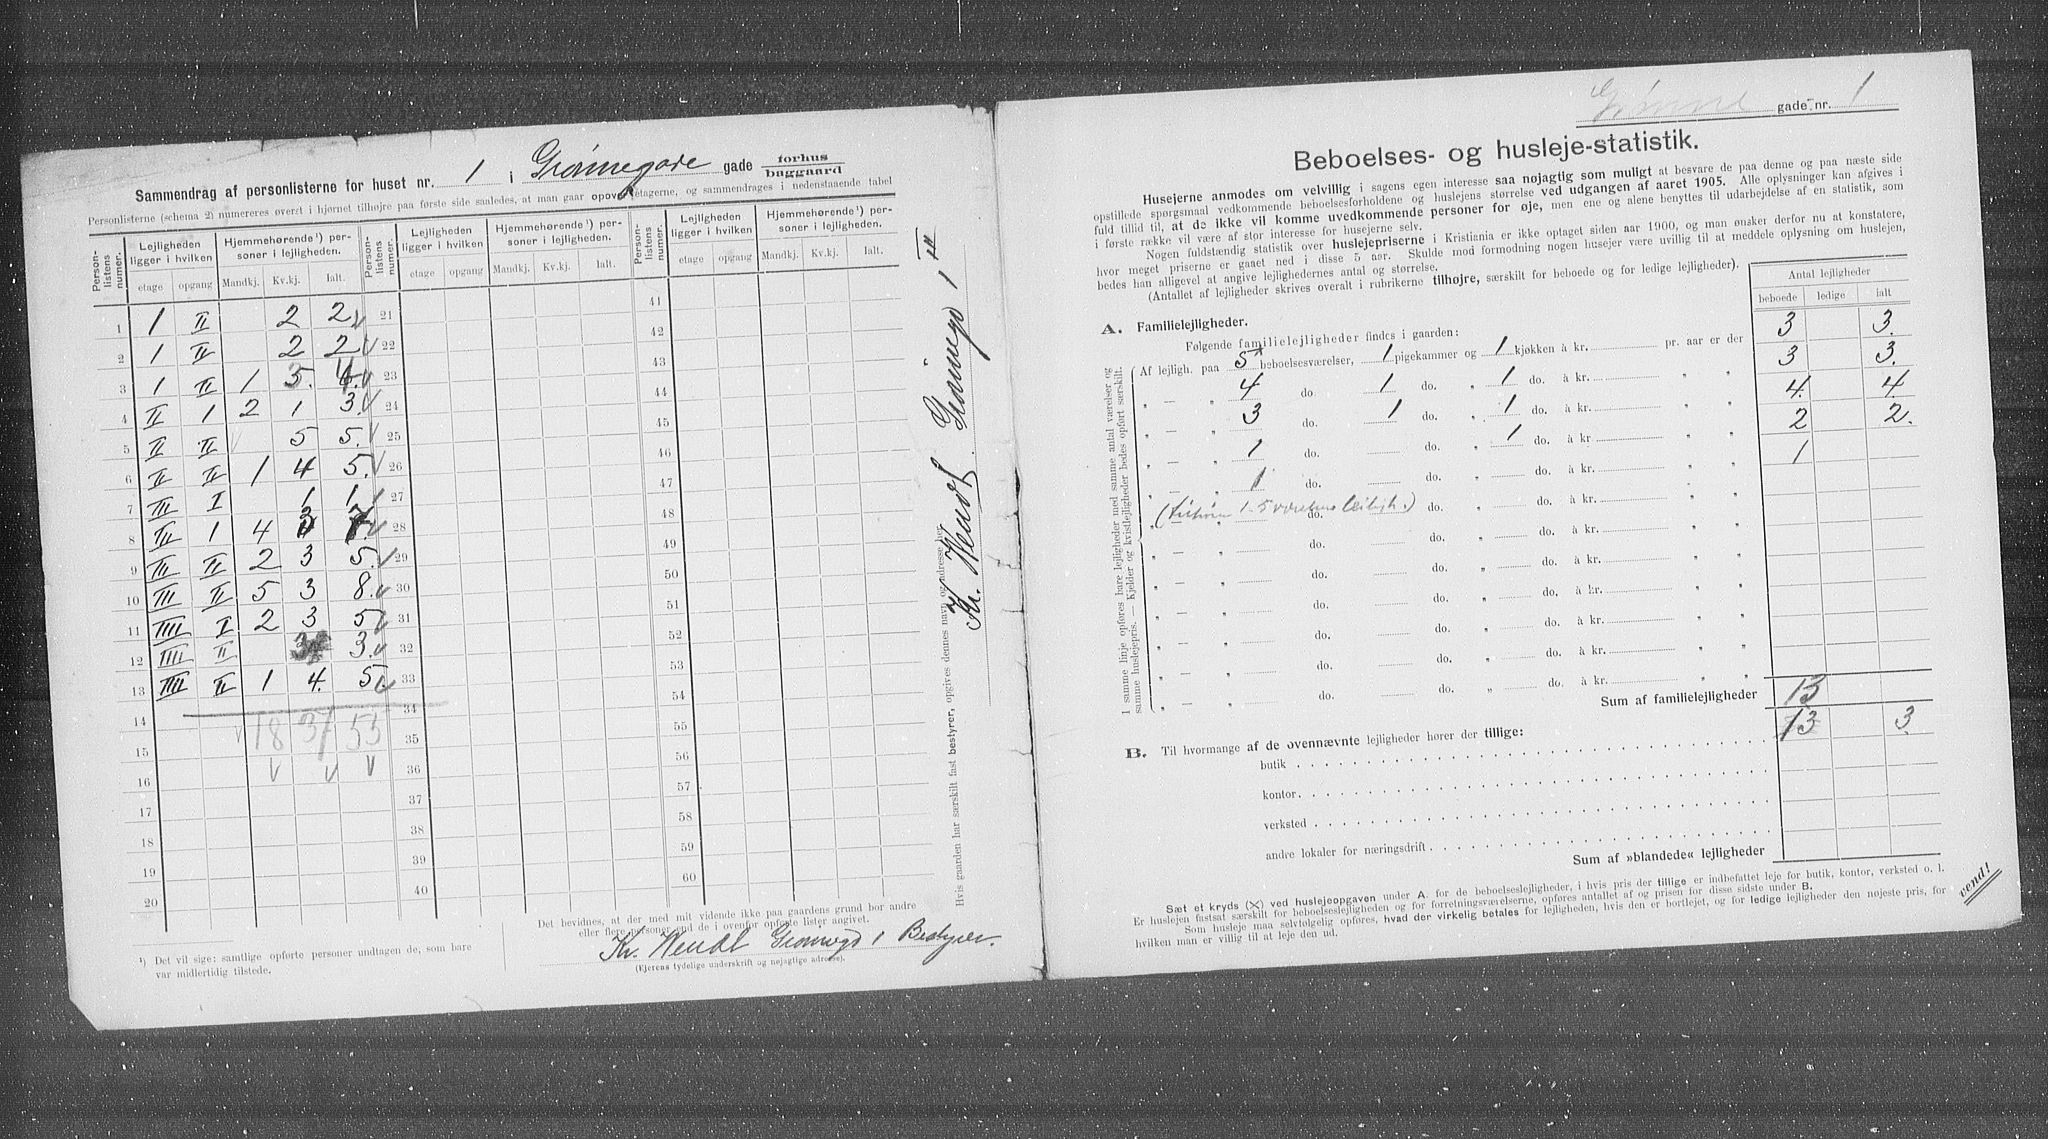 Sammendrag af personlisterne for huset nr. 1 i Grønnegade gade forhus baggaard
Personlisterne (schema 2) numereres øverst i hjørnet tilhøjre paa første side saaledes, at man gaar opover etagerne, og sammendrages i nedenstaaende tabel
Person-listens numer. Lejligheden ligger i hvilken Hjemmehørende¹) personer i lejligheden.
etage opgang Mandkj. Kv.kj. Ialt.
1 1 II 2 2
2 1 II 2 2
3 1 II 1 3. 4.
4 II 1 2 1 3.
5 II II 5 5.
6 II II 1 4 5.
7 III I 1 1
8 III 1 4 3 7.
9 III II 2 3 5.
10 III II 5 3 8.
11 IIII I 2 3 5
12 IIII II 3 3.
13 IIII II 1 4. 5.
14
15 18 37 55
16
17
18
19
20
Person-listens numer. Lejligheden ligger i hvilken Hjemmehørende¹) personer i lejligheden.
etage opgang Mandkj. Kv.kj. Ialt.
21
22
23
24
25
26
27
28
29
30
31
32
33
34
35
36
37
38
39
40
Person-listens numer. Lejligheden ligger i hvilken Hjemmehørende¹) personer i lejligheden.
etage opgang Mandkj. Kv.kj. Ialt.
41
42
43
44
45
46
47
48
49
50
51
52
53
54
55
56
57
58
59
60
¹) Det vil sige: samtlige opførte personer undtagen de, som bare
var midlertidig tilstede.
Det bevidnes, at der med mit vidende ikke paa gaardens grund bor andre
eller flere personer end de i ovenfor opførte lister angivet.
Kr. Wendt Grønnegd 1 Bestyrer.
(Ejerens tydelige underskrift og nøjagtige adresse).
Hvis gaarden har særskilt fast bestyrer, opgives dennes navn og adresse her
Kr. Wendt. Grønnegd 1 III
Grønne gade nr. 1
Beboelses- og husleje-statistik.
Husejerne anmodes om velvillig i sagens egen interesse saa nøjagtig som muligt at besvare de paa denne og paa næste side
opstillede spørgsmaal vedkommende beboelsesforholdene og huslejens størrelse ved udgangen af aaret 1905. Alle oplysninger kan afgives i
fuld tillid til, at de ikke vil komme uvedkommende personer for øje, men ene og alene benyttes til udarbejdelse af en statistik, som
i første række vil være af stor interesse for husejerne selv.
Nogen fuldstændig statistik over huslejepriserne i Kristiania er ikke optaget siden aar 1900, og man ønsker derfor nu at konstatere,
hvor meget priserne er gaaet ned i disse 5 aar. Skulde mod formodning nogen husejer være uvillig til at meddele oplysning om huslejen,
bedes han alligevel at angive lejlighedernes antal og størrelse.
(Antallet af lejligheder skrives overalt i rubrikerne tilhøjre, særskilt for beboede og for ledige lejligheder).
Antal lejligheder
beboede ledige ialt
A. Familielejligheder.
Følgende familielejligheder findes i gaarden:
Af lejligh. paa 5 beboelsesværelser, 1 pigekammer og 1 kjøkken à kr. pr. aar er der 3 3.
„ — „ 4 do. 1 do. „ 1 do. à kr. „ „ 3 3.
„ — „ 3 do. 1 do. „ 1 do. à kr. „ „ 4. 4.
„ — „ 1 do. do. „ 1 do. à kr. „ „ 2 2.
„ — „ 1 do. do. „ do. à kr. „ „ 1
(tilhører 1 - 5 værelses leiligh.) do. do. „ do. à kr. „ „
„ — „ do. do. „ do. à kr. „ „
„ — „ do. do. „ do. à kr. „ „
„ — „ do. do. „ do. à kr. „ „
„ — „ do. do. „ do. à kr. „ „
„ — „ do. do. „ do. à kr. „ „
„ — „ do. do. „ do. à kr. „ „
I samme linje opføres bare lejligheder med samme antal værelser og
samme huslejepris. — Kjelder og kvistlejligheder bedes opført særskilt.
Sum af familielejligheder 13
13 3.
B. Til hvormange af de ovennævnte lejligheder hører der tillige:
butik
kontor
verksted
andre lokaler for næringsdrift
Sum af »blandede« lejligheder
Sæt et kryds (×) ved huslejeopgaven under A. for de beboelseslejligheder, i hvis pris der tillige er indbefattet leje for butik, kontor, verksted o. l.
Er huslejen fastsat særskilt for beboelseslejligheden og for forretningsværelserne, opføres antallet af og prisen for disse sidste under B.
Som husleje maa selvfølgelig opføres, hvad der virkelig betales for lejligheden, hvis den er bortlejet, og for ledige lejligheder den nøjeste pris, for
hvilken man er villig til at leje den ud.
vend!